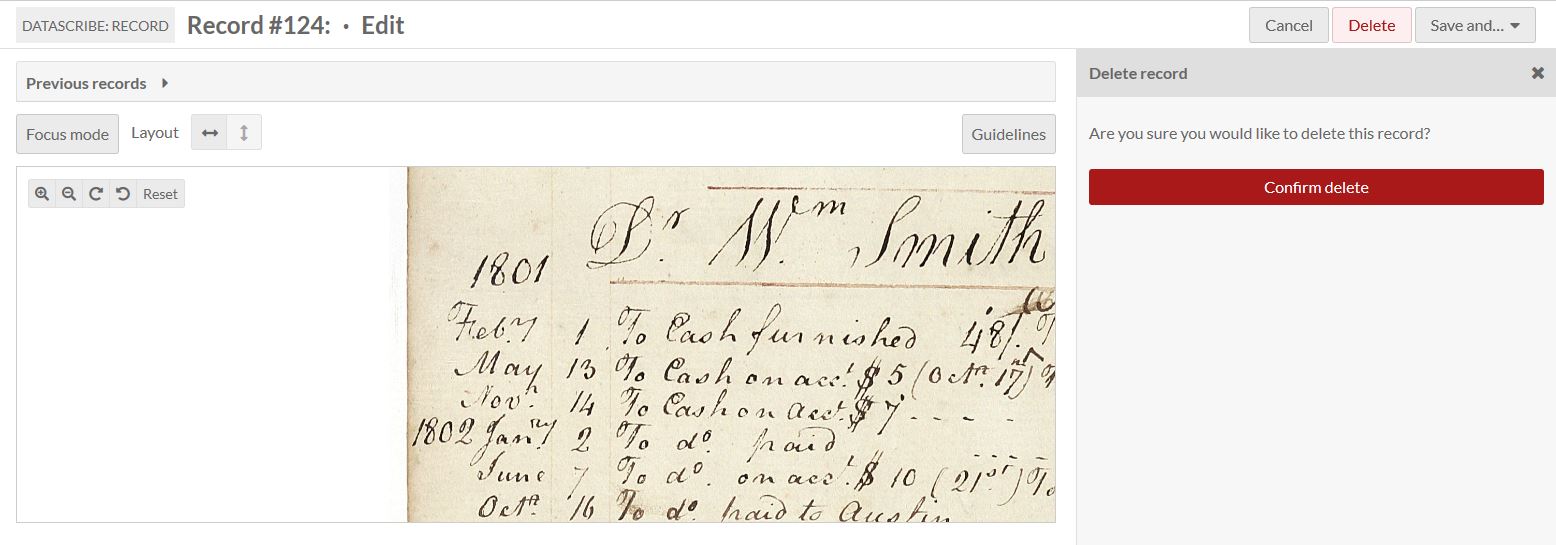 DATASCRIBE: RECORD Record #124: · Edit Cancel Delete Save and...
Previous records
Delete record
Focus mode Layout Guidelines
Are you sure you would like to delete this record?
Reset
Confirm delete
Dr. Wm Smith
1801
Febry 1 To Cash furnished 48/.
May 13 To Cash on acct. $ 5 (Octr. 17)
Novr. 14 To Cash on acct. $ 7 - - - -
1802 Janry 2 To do. paid
June 7 To do. on acct. $ 10 (21st) To
Octr. 16 To do. paid to Austin